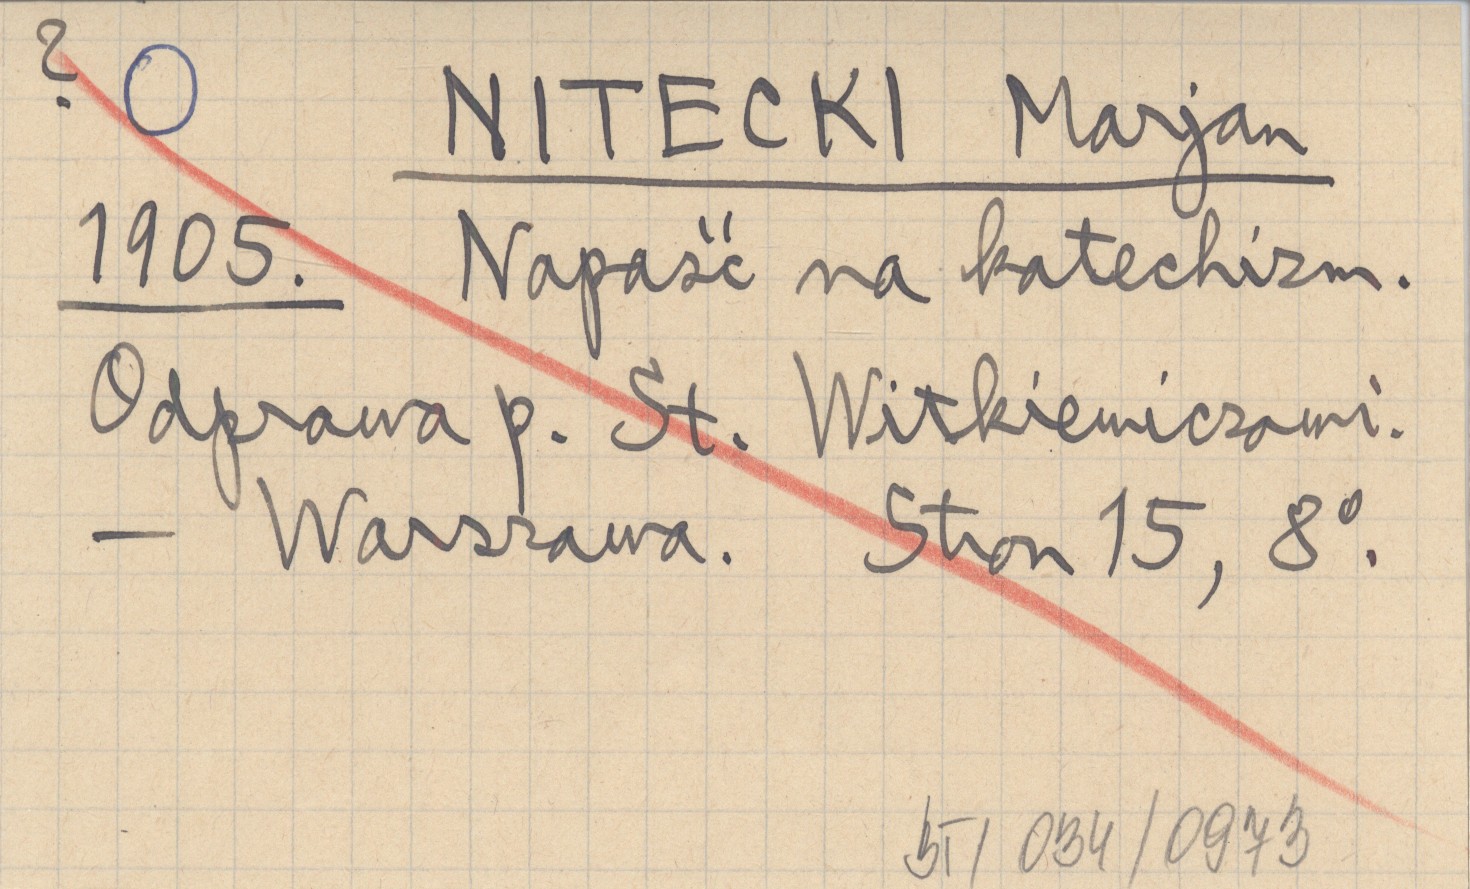 ?
NITECKI Marjan
1905. Napaść na katechizm.
Odprawa p. St. Witkiewiczowi.
— Warszawa. Stron 15, 8º.
034/0973